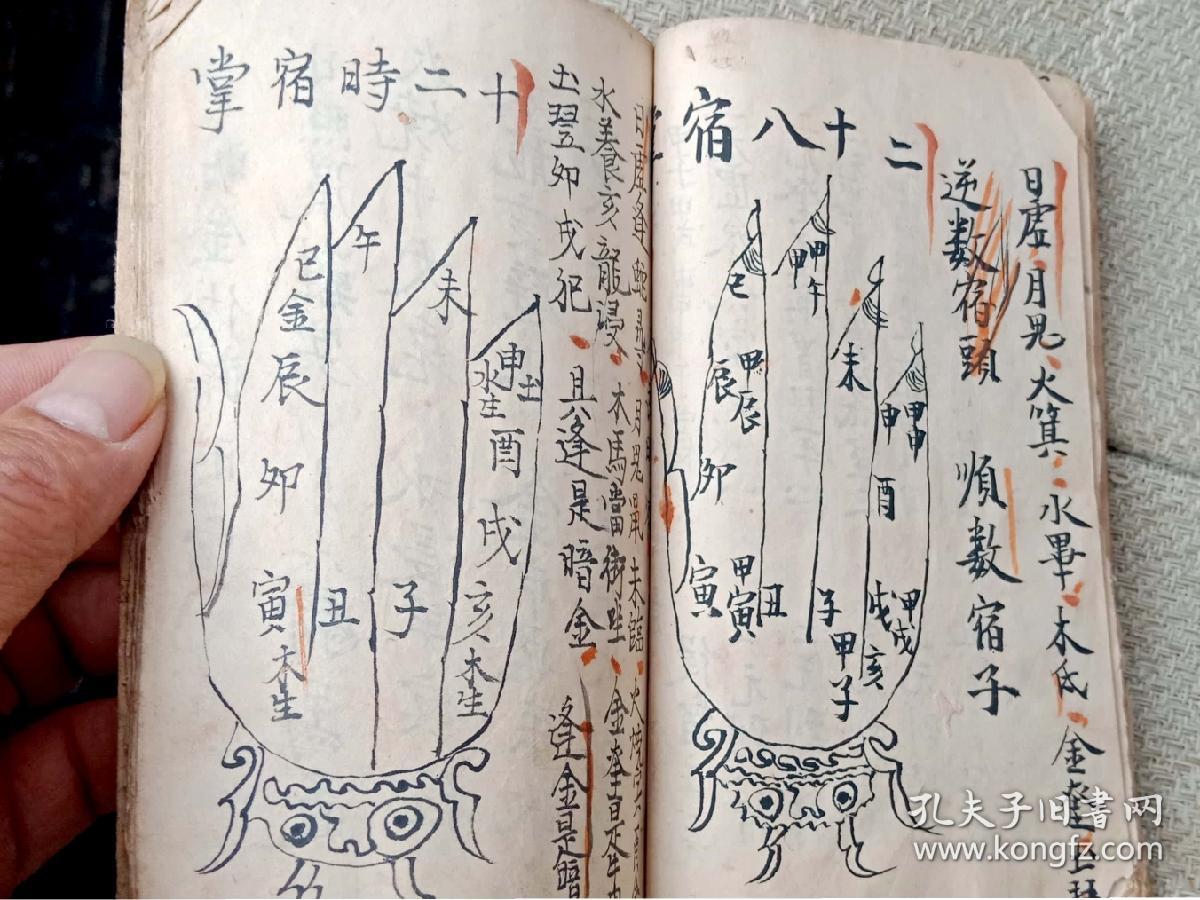 日虛月鬼火箕水畢木氐金奎土翌
逆數宿頭 順數宿子
二十八宿
巳
甲午
甲
未
甲申
申
辰
甲辰
酉
卯
甲戌
戌
寅
甲寅
丑
子
甲子
亥
日虛逢
月鬼鼠未臨
水養亥龍浸 木馬當街坐 金奎
土翌卯戌犯 具逢是暗金
逢金是暗
十二時宿掌
午
巳金
未
辰
申土
水生
酉
卯
戌
寅木生
丑
子
亥木生
孔夫子旧書网
www.kongfz.com